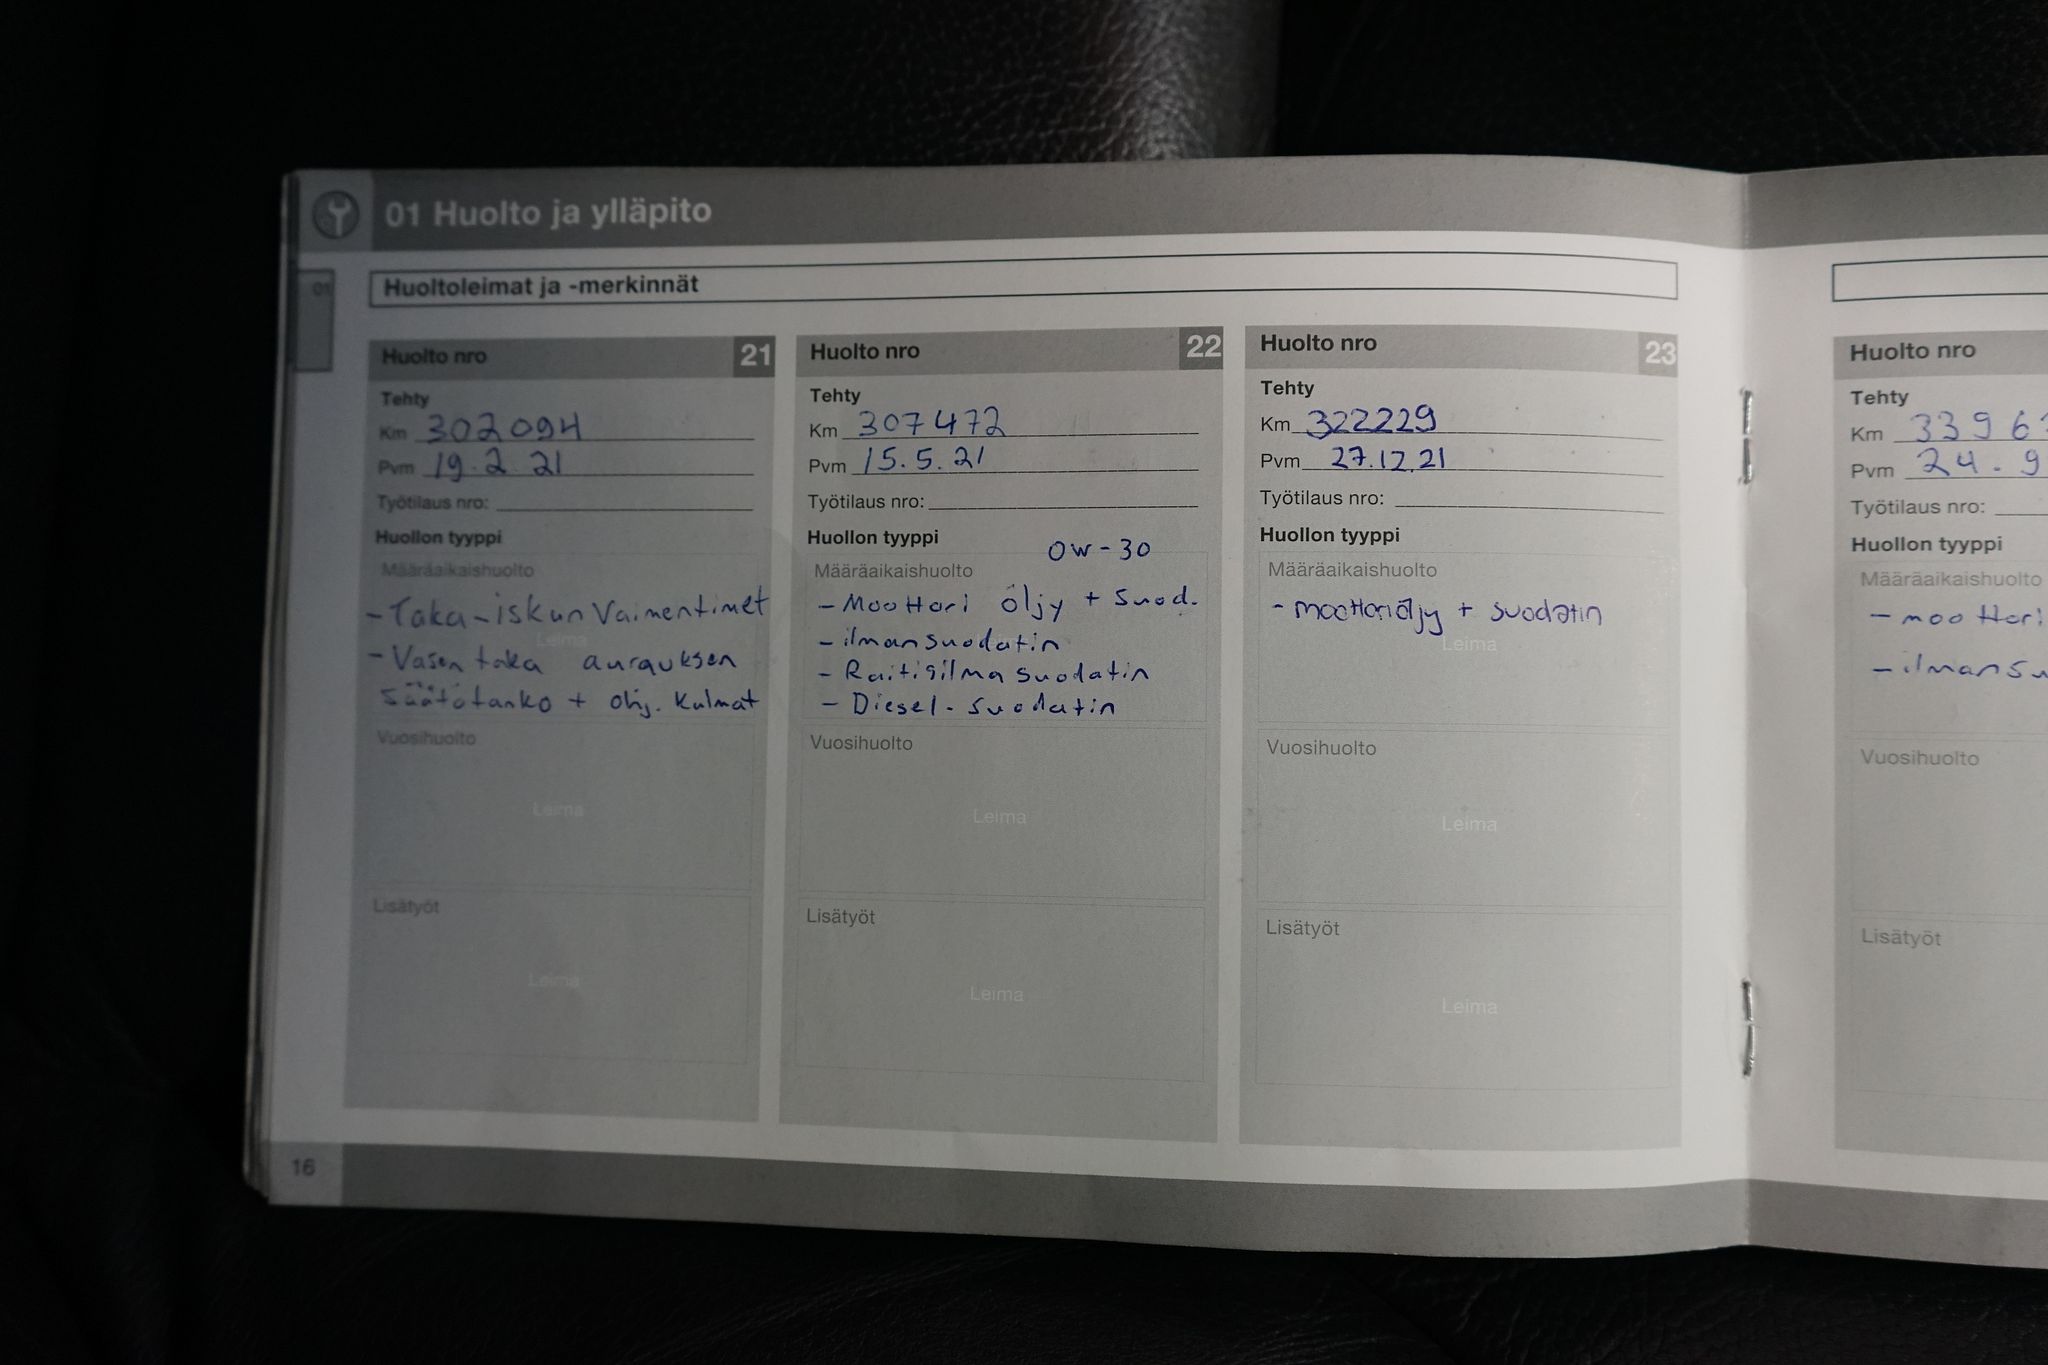 01 Huolto ja ylläpito
01
Huoltoleimat ja -merkinnät
Huolto nro 21
Tehty
Km 302094
Pvm 19.2 21
Työtilaus nro:
Huollon tyyppi
Määräaikaishuolto
- Taka-iskunvaimentimet
Leima
- Vasen taka aurauksen
säätötanko + ohj. kulmat
Vuosihuolto
Leima
Lisätyöt
Leima
Huolto nro 22
Tehty
Km 307472
Pvm 15.5.21
Työtilaus nro:
Huollon tyyppi
0W-30
Määräaikaishuolto
- Moottori öljy + suod.
- ilmansuodatin
- Raitisilma suodatin
- Diesel-suodatin
Vuosihuolto
Leima
Lisätyöt
Leima
Huolto nro 23
Tehty
Km 322229
Pvm 27.12.21
Työtilaus nro:
Huollon tyyppi
Määräaikaishuolto
- moottoriöljy + suodatin
Leima
Vuosihuolto
Leima
Lisätyöt
Leima
16
Huolto nro
Tehty
Km 3396
Pvm 24.9
Työtilaus nro:
Huollon tyyppi
Määräaikaishuolto
- moottori
- ilmansu
Vuosihuolto
Lisätyöt